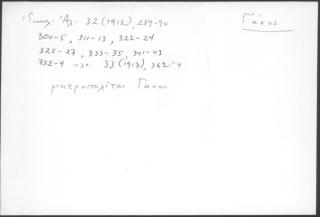 Γάνος
Ἐκκλ. Ἀλ. 32 (1912), 289-90
304-5, 311-13, 322-24
325-27, 333-35, 341-43
352-4 33 (1913), 362-4
μητροπολίται Γάνου